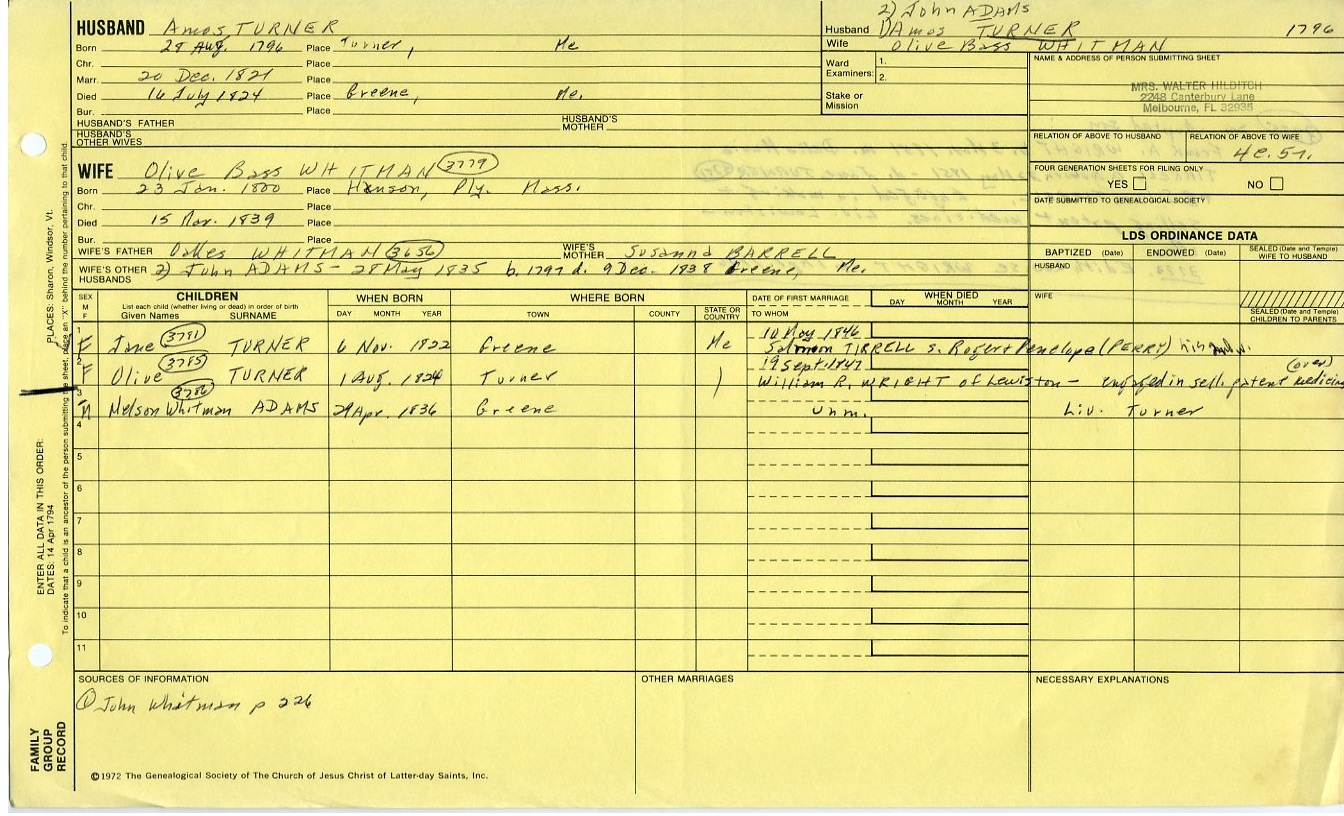 HUSBAND Amos TURNER
Born 28 Aug. 1796 Place Turner, Me
Chr. Place
Marr. 20 Dec. 1821 Place
Died 16 July 1824 Place Greene, Me.
Bur. Place
HUSBAND'S FATHER HUSBAND'S MOTHER
HUSBAND'S OTHER WIVES
2) John ADAMS
Husband 1) Amos TURNER 1796
Wife Olive Bass WHITMAN
Ward Examiners: 1.
2.
Stake or Mission
NAME & ADDRESS OF PERSON SUBMITTING SHEET
MRS. WALTER HILDITCH
2248 Canterbury Lane
Melbourne, FL 32935
RELATION OF ABOVE TO HUSBAND RELATION OF ABOVE TO WIFE
4c. 5r.
FOUR GENERATION SHEETS FOR FILING ONLY
YES NO
DATE SUBMITTED TO GENEALOGICAL SOCIETY
WIFE Olive Bass WHITMAN 3779
Born 23 Jan. 1800 Place Hanson, Ply. Mass.
Chr. Place
Died 15 Nov. 1839 Place
Bur. Place
WIFE'S FATHER Oakes WHITMAN 3656 WIFE'S MOTHER Susanna BARRELL
WIFE'S OTHER HUSBANDS 2) John ADAMS - 28 May 1835 b. 1797 d. 9 Dec. 1838 Greene, Me.
LDS ORDINANCE DATA
BAPTIZED (Date) ENDOWED (Date) SEALED (Date and Temple) WIFE TO HUSBAND
HUSBAND
WIFE
SEALED (Date and Temple) CHILDREN TO PARENTS
SEX M F CHILDREN WHEN BORN WHERE BORN DATE OF FIRST MARRIAGE WHEN DIED
List each child (whether living or dead) in order of birth
Given Names SURNAME DAY MONTH YEAR TOWN COUNTY STATE OR COUNTRY TO WHOM DAY MONTH YEAR
1 F Jane 3781 TURNER 6 Nov. 1822 Greene Me 10 May 1846
Salmon TIRRELL s. Roger + Penelope (PERRY)
2 F Olive 3785 TURNER 1 Aug. 1824 Turner 19 Sept. 1847 (over)
William R. WRIGHT of Lewiston - engaged in sell. patent medicine
3 M Nelson Whitman ADAMS 3786 29 Apr. 1836 Greene Unm. Liv. Turner
4
5
6
7
8
9
10
11
SOURCES OF INFORMATION OTHER MARRIAGES NECESSARY EXPLANATIONS
① John Whitman p 226
©1972 The Genealogical Society of The Church of Jesus Christ of Latter-day Saints, Inc.
FAMILY GROUP RECORD
ENTER ALL DATA IN THIS ORDER:
DATES: 14 Apr 1794
PLACES: Sharon, Windsor, Vt.
To indicate that a child is an ancestor of the person submitting the sheet, place an "X" behind the number pertaining to that child.